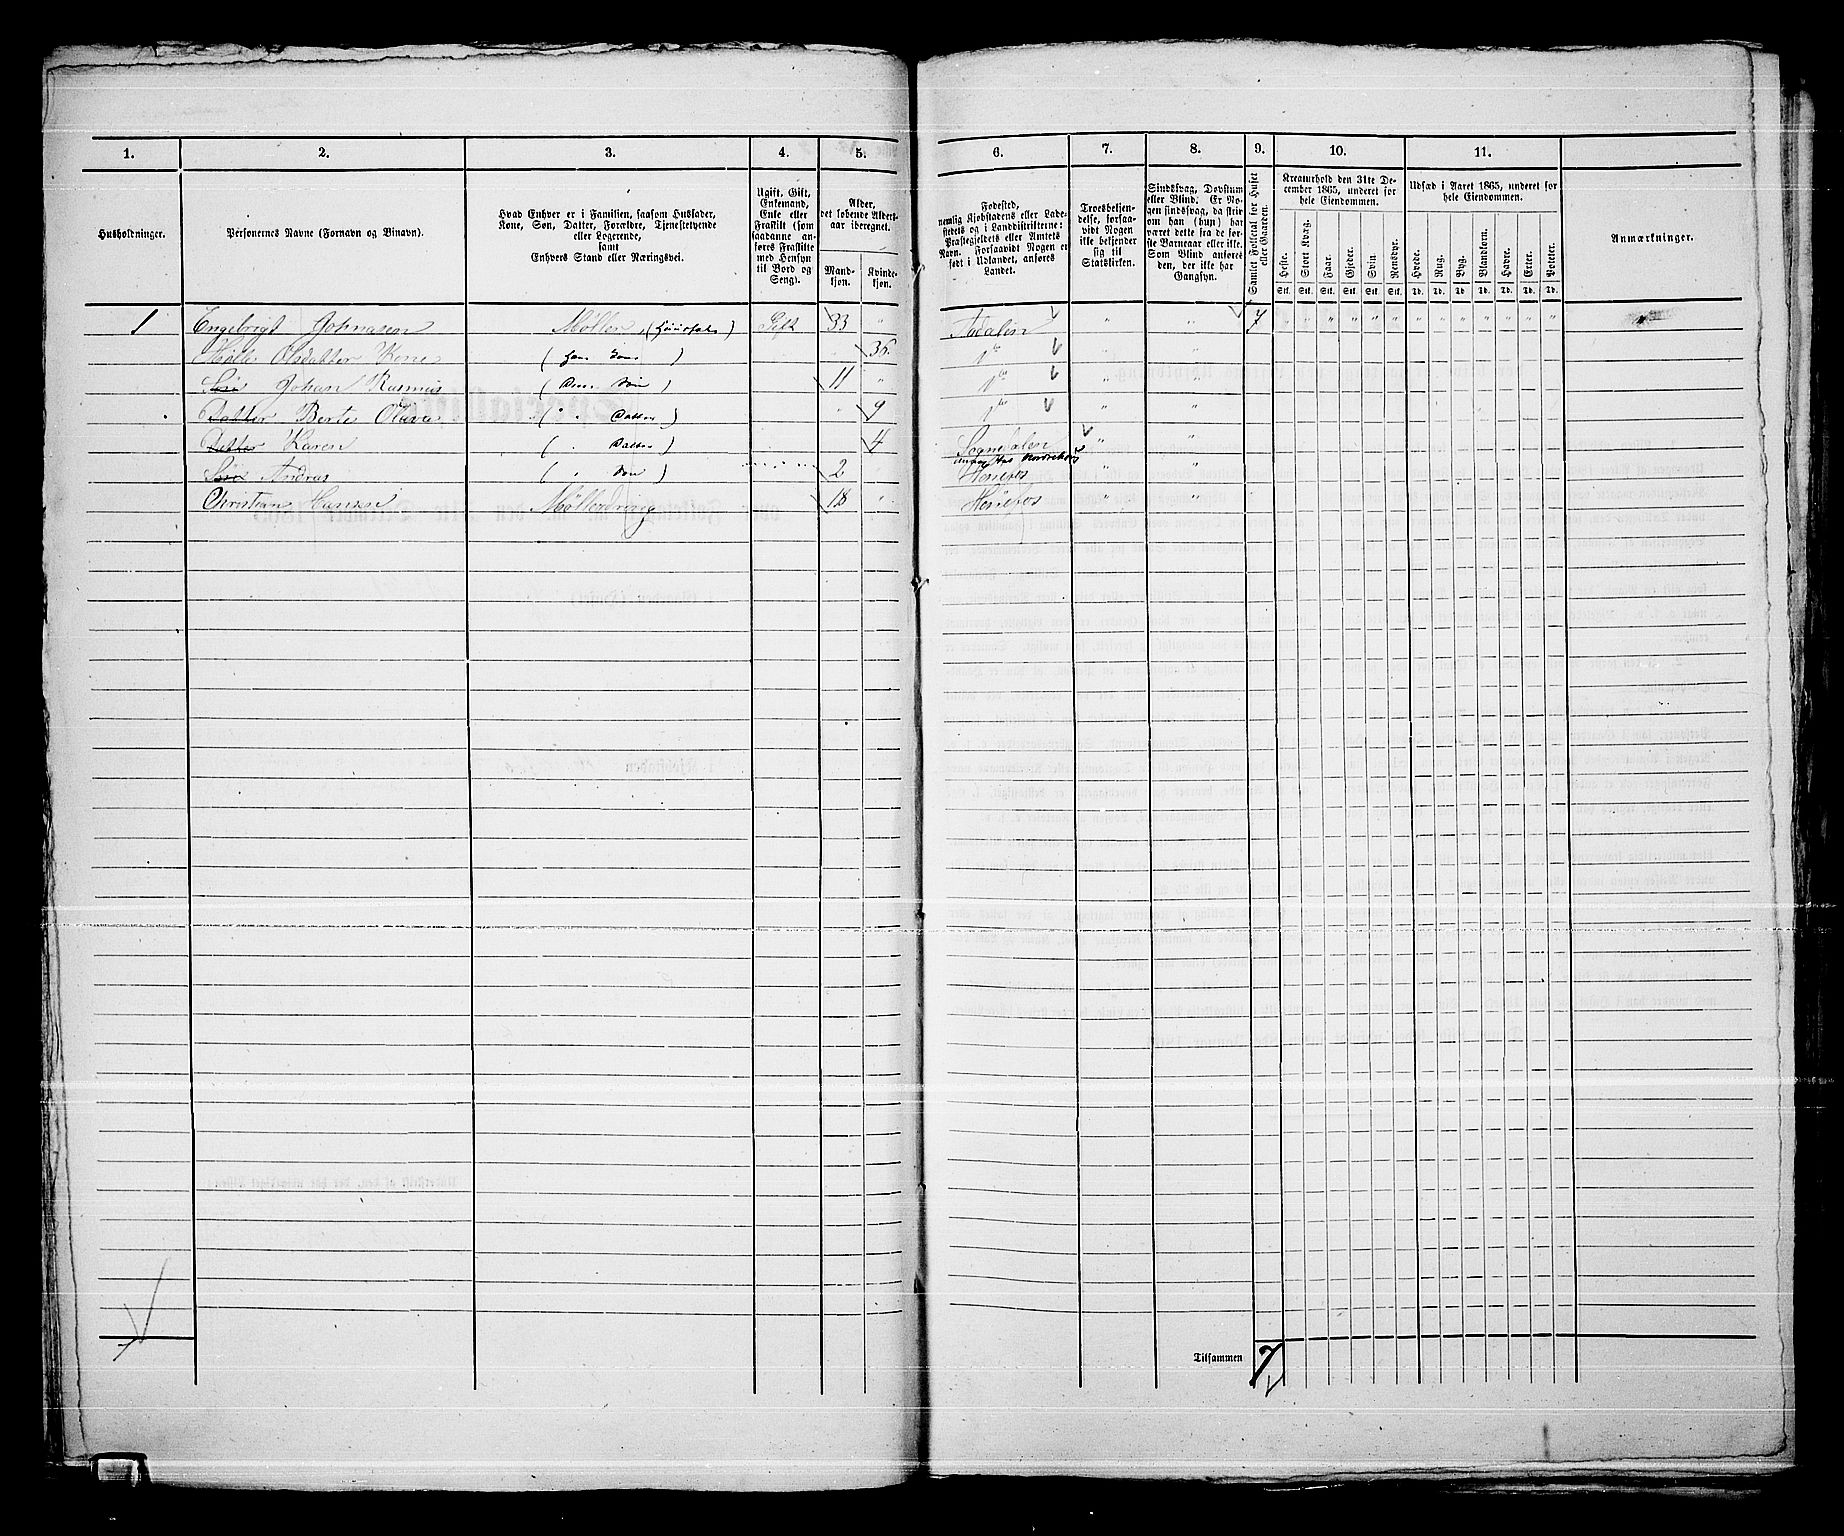 1. 2. 3. 4. 5. 6. 7. 8. 9. 10. 11.
Husholdninger.
Personernes Navne (Fornavn og Binavn).
Hvad Enhver er i Familien, saasom Husfader,
Kone, Søn, Datter, Forældre, Tjenestetyende
eller Logerende,
samt
Enhvers Stand eller Næringsvei.
Ugift, Gift,
Enkemand,
Enke eller
Fraskilt (som
saadanne an-
føres Fraskilte
med Hensyn
til Bord og
Seng).
Alder,
det løbende Alders-
aar iberegnet.
Mand-
kjøn.
Kvinde-
kjøn.
Fødested,
nemlig Kjøbstadens eller Lade-
stedets og i Landdistrikterne:
Præstegjeldets eller Amtets
Navn. Forsaavidt Nogen er
født i Udlandet, anføres
Landet.
Troesbekjen-
delse, forsaa-
vidt Nogen
ikke bekjender
sig til
Statskirken.
Sindssvag, Døvstum
eller Blind. Er No-
gen sindssvag, da skriv
om han (hun) har
været dette fra de før-
ste Barneaar eller ikke.
Som Blind anføres
den, der ikke har
Gangsyn.
Samlet Folketal for Huset
eller Gaarden.
Kreaturhold den 31te De-
cember 1865, underet for
hele Eiendommen.
Heste. Stort Kvæg. Faar. Gjeder. Svin. Rensdyr.
Stk. Stk. Stk. Stk. Stk. Stk.
Udsæd i Aaret 1865, underet for
hele Eiendommen.
Hvede. Rug. Byg. Blandkorn. Havre. Erter. Poteter.
Td. Td. Td. Td. Td. Td. Td.
Anmærkninger.
1 Engebrigt Johnasen Møller (Huusfader) Gift 33 " Aadalen " " 7
Olsdatter Kone ( hans Kone ) 36 do " "
Søn Johan Rasmus ( Deres Søn ) 11 " do " "
Datter Berte Olava ( " " Datter ) " 9 do " "
Datter Karen ( " Datter ) 4 Sognedalen " "
Søn Andras ( " Søn ) 2 " Hønefos " "
Christian Hansen Møllerdreng 18 " Hønefos " "
Tilsammen 7